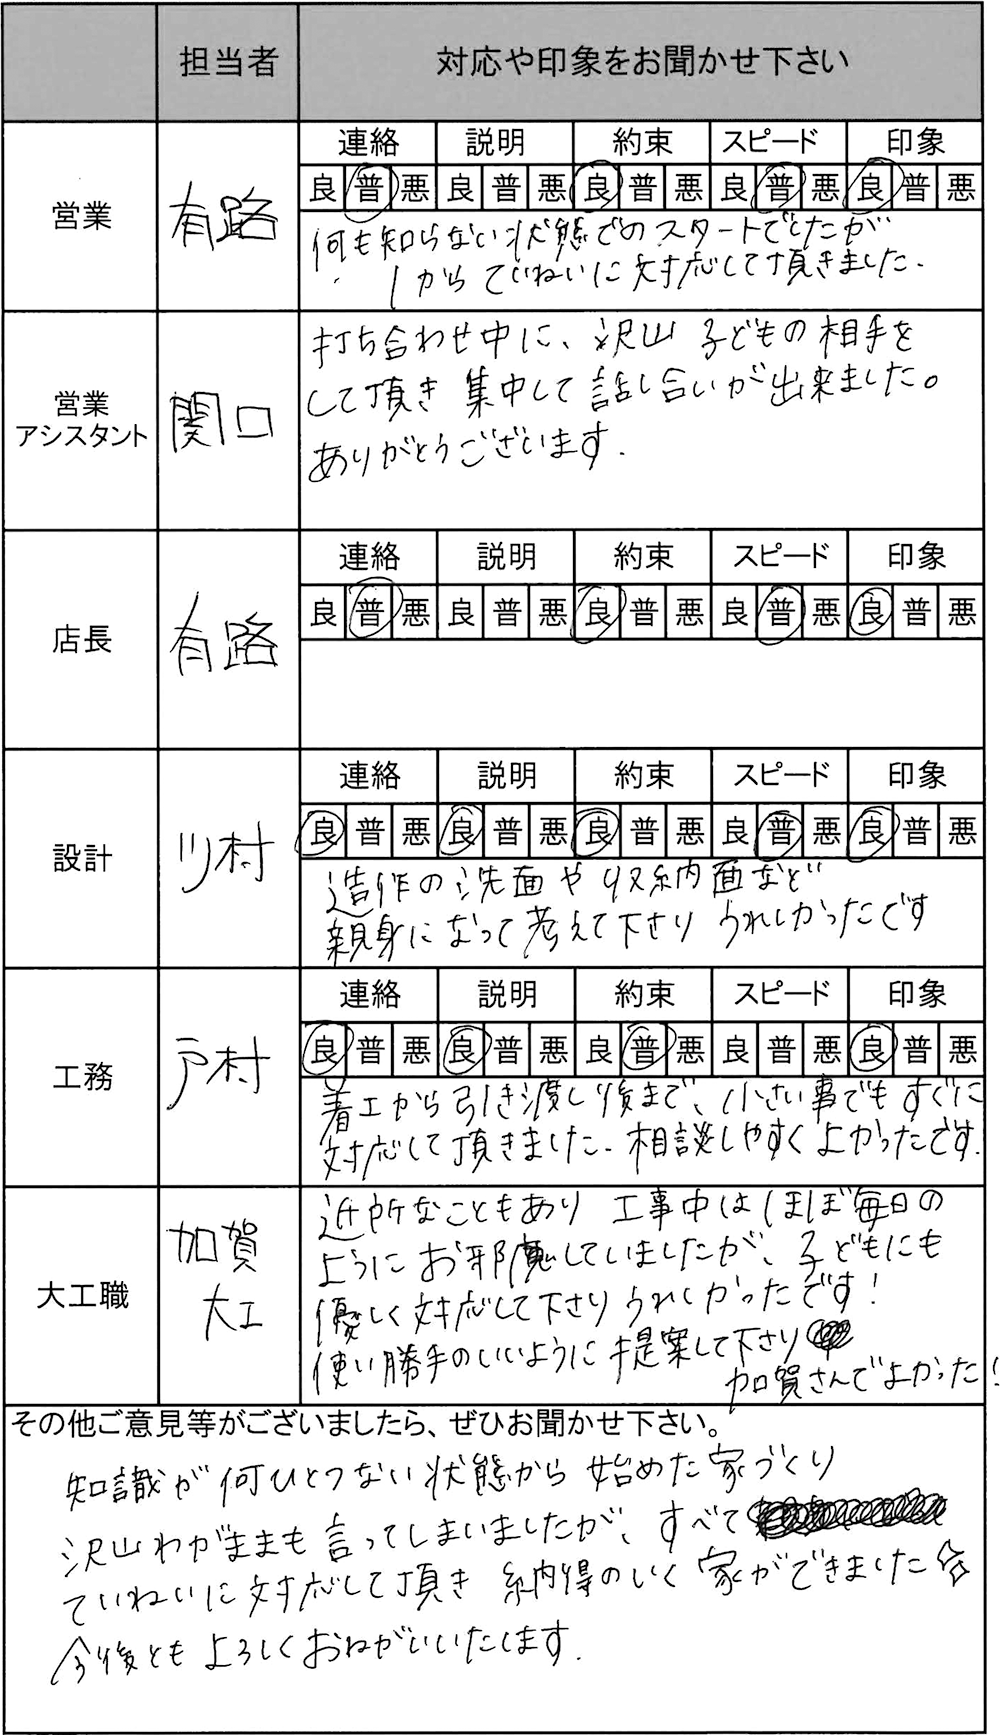 担当者 対応や印象をお聞かせ下さい
連絡 説明 約束 スピード 印象
営業 有路 良 普 悪 良 普 悪 良 普 悪 良 普 悪 良 普 悪
何も知らない状態でのスタートでしたが
1からていねいに対応して頂きました.
営業
アシスタント
関口
打ち合わせ中に、沢山 子どもの相手を
して頂き 集中して話し合いが出来ました。
ありがとうございます.
連絡 説明 約束 スピード 印象
店長 有路 良 普 悪 良 普 悪 良 普 悪 良 普 悪 良 普 悪
連絡 説明 約束 スピード 印象
設計 川村 良 普 悪 良 普 悪 良 普 悪 良 普 悪 良 普 悪
造作の洗面や収納面など
親身になって考えて下さり うれしかったです
連絡 説明 約束 スピード 印象
工務 戸村 良 普 悪 良 普 悪 良 普 悪 良 普 悪 良 普 悪
着工から引き渡し後まで、小さい事でもすぐに
対応して頂きました. 相談しやすくよかったです.
大工職
加賀
大工
近所なこともあり 工事中はほぼ毎日の
ようにお邪魔していましたが、子どもにも
優しく対応して下さりうれしかったです!
使い勝手のいいように提案して下さり
加賀さんでよかった!
その他ご意見等がございましたら、ぜひお聞かせ下さい。
知識が何ひとつない状態から始めた家づくり
沢山わがままも言ってしまいましたが、すべて
ていねいに対応して頂き 納得のいく家ができました☆
今後ともよろしくおねがいいたします.